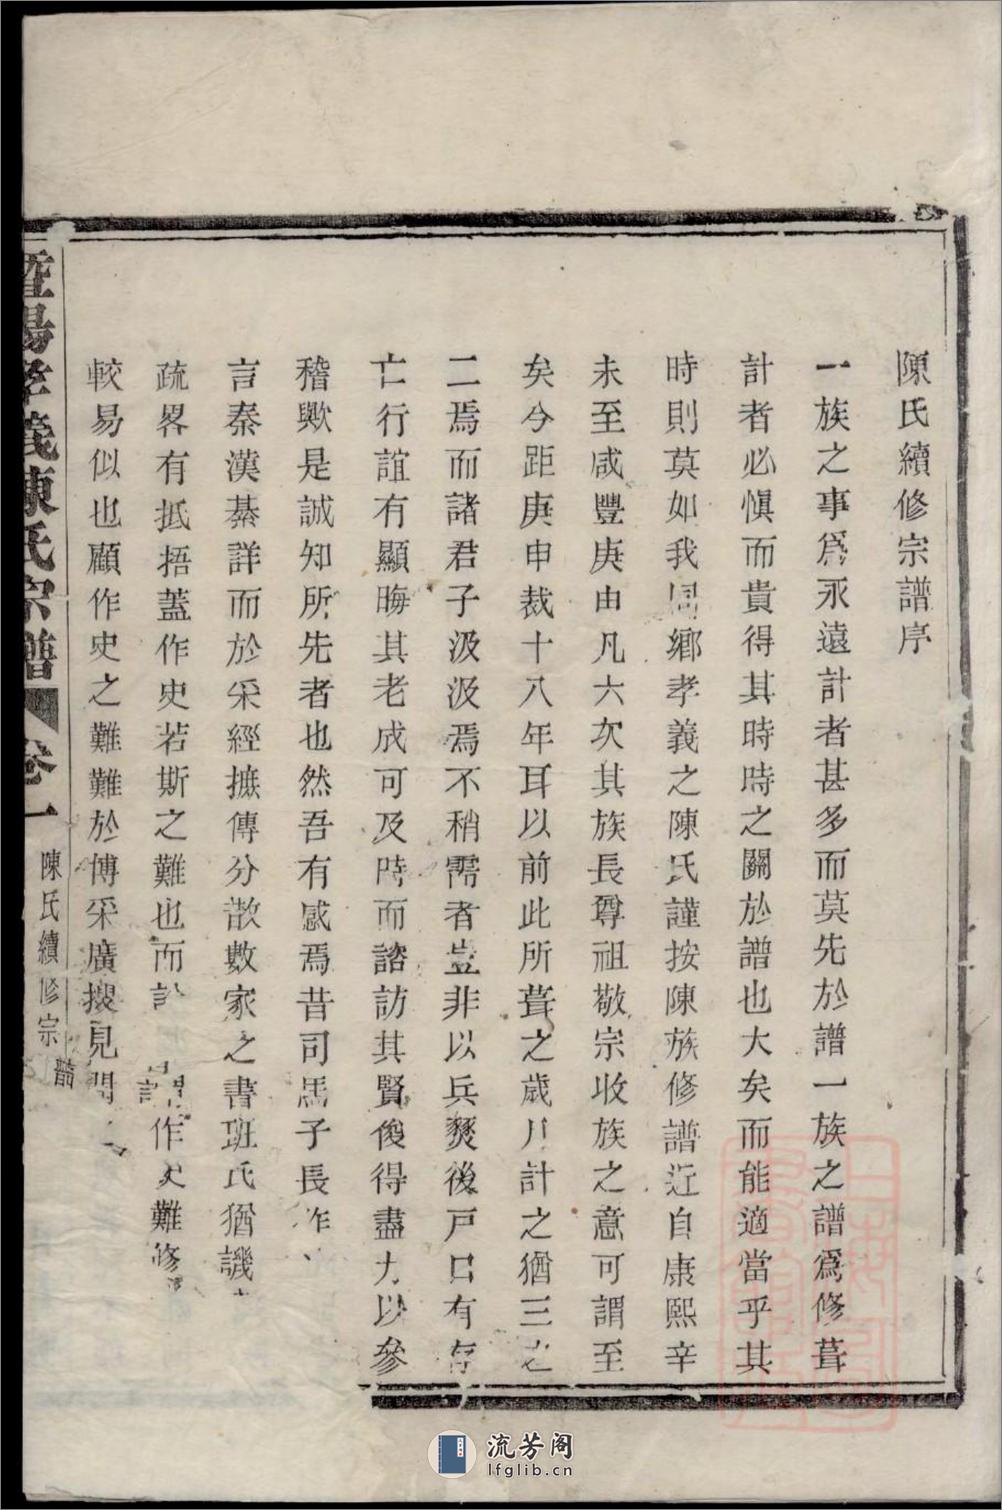 陳氏續修宗譜序
一族之事爲永遠計者甚多而莫先於譜一族之譜爲修葺
計者必愼而貴得其時時之關於譜也大矣而能適當乎其
時則莫如我同鄉孝義之陳氏謹按陳族修譜近自康熙辛
未至咸豐庚由凡六次其族長尊祖敬宗收族之意可謂至
矣今距庚申裁十八年耳以前此所葺之歲月計之猶三之
二焉而諸君子汲汲焉不稍需者豈非以兵燹後戸口有存
亡行誼有顯晦其老成可及時而諮訪其賢俊得盡力以參
稽歟是誠知所先者也然吾有感焉昔司馬子長作
言秦漢綦詳而於采經摭傳分散數家之書班氏猶譏
疏畧有抵捂蓋作史若斯之難也而 作史難修
較易似也顧作史之難難於傅采廣搜見聞
暨陽孝義陳氏宗譜 卷一 陳氏續修宗譜
流芳阁
lfglib.cn